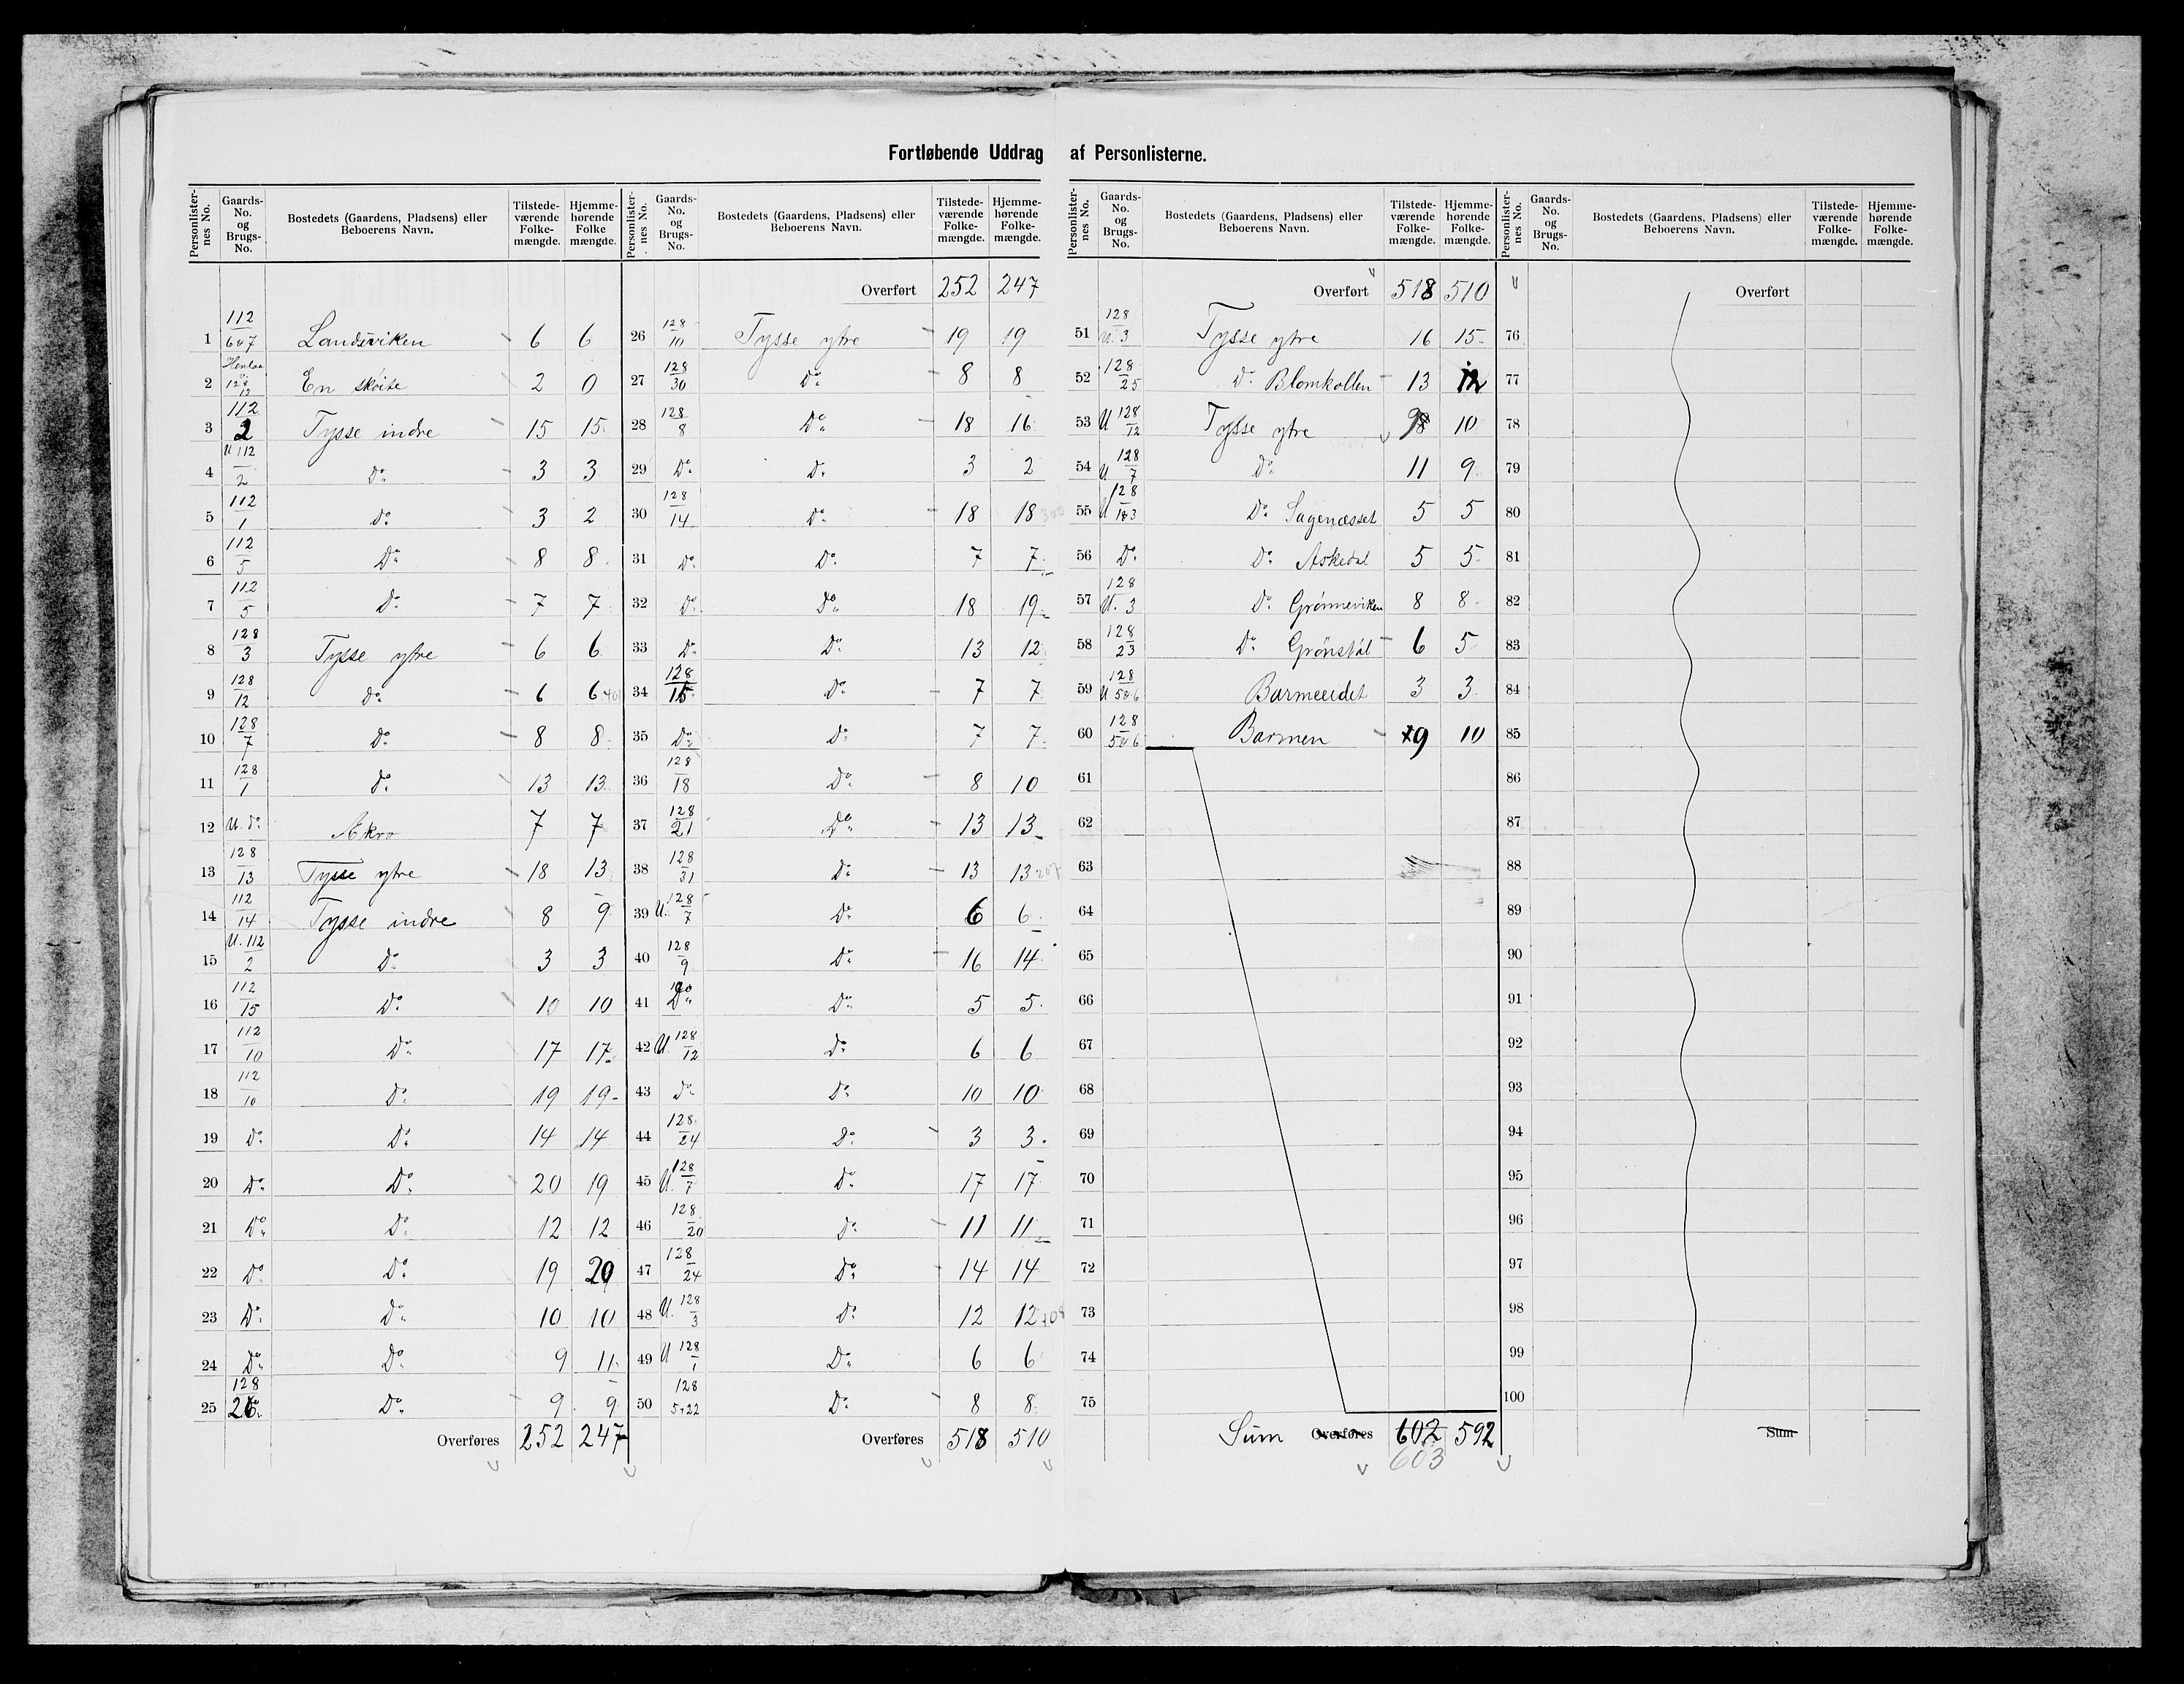 Fortløbende Uddrag af Personlisterne.
Personlister-nes No. | Gaards-No. og Brugs-No. | Bostedets (Gaardens, Pladsens) eller Beboerens Navn. | Tilstede-værende Folke-mængde. | Hjemme-hørende Folke mængde.
1 | 112/6&7 | Landsviken | 6 | 6
2 | 128/12 | En skøite | 2 | 0
3 | 112/2 | Tysse indre | 15 | 15
4 | U 112/2 | Do | 3 | 3
5 | 112/1 | Do | 3 | 2
6 | 112/5 | Do | 8 | 8
7 | 112/5 | Do | 7 | 7
8 | 128/3 | Tysse ytre | 6 | 6
9 | 128/12 | Do | 6 | 6
10 | 128/7 | Do | 8 | 8
11 | 128/1 | Do | 13 | 13
12 | U. do | Akro | 7 | 7
13 | 128/13 | Tysse ytre | 18 | 13
14 | 112/14 | Tysse indre | 8 | 9
15 | U. 112/2 | Do | 3 | 3
16 | 112/15 | Do | 10 | 10
17 | 112/10 | Do | 17 | 17
18 | 112/10 | Do | 19 | 19
19 | Do | Do | 14 | 14
20 | Do | Do | 20 | 19
21 | Do | Do | 12 | 12
22 | Do | Do | 19 | 20
23 | Do | Do | 10 | 10
24 | Do | Do | 9 | 11
25 | 128/26 | Do | 9 | 9
Overføres 252 | 247
Personlister-nes No. | Gaards-No. og Brugs-No. | Bostedets (Gaardens, Pladsens) eller Beboerens Navn. | Tilstede-værende Folke-mængde. | Hjemme-hørende Folke-mængde.
Overført 252 | 247
26 | 128/10 | Tysse ytre | 19 | 19
27 | 128/30 | Do | 8 | 8
28 | 128/8 | Do | 18 | 16
29 | Do | Do | 3 | 2
30 | 128/14 | Do | 18 | 18
31 | Do | Do | 7 | 7
32 | Do | Do | 18 | 19
33 | Do | Do | 13 | 12
34 | 128/15 | Do | 7 | 7
35 | Do | Do | 7 | 7
36 | 128/18 | Do | 8 | 10
37 | 128/21 | Do | 13 | 13
38 | 128/31 | Do | 13 | 13
39 | U. 128/7 | Do | 6 | 6
40 | 128/9 | Do | 16 | 14
41 | Do | Do | 5 | 5
42 | U. 128/12 | Do | 6 | 6
43 | Do | Do | 10 | 10
44 | 128/24 | Do | 3 | 3
45 | U. 128/7 | Do | 17 | 17
46 | 128/20 | Do | 11 | 11
47 | 128/24 | Do | 14 | 14
48 | U. 128/3 | Do | 12 | 12
49 | U 128/1 | Do | 6 | 6
50 | 128/5+22 | Do | 8 | 8
Overføres 518 | 510
Personlister-nes No. | Gaards-No. og Brugs-No. | Bostedets (Gaardens, Pladsens) eller Beboerens Navn. | Tilstede-værende Folke-mængde. | Hjemme-hørende Folke-mængde.
Overført 518 | 510
51 | 128/U. 3 | Tysse ytre | 16 | 15
52 | 128/25 | Do Blomkollen | 13 | 12
53 | U 128/12 | Tysse ytre | 98 | 10
54 | U 128/7 | Do | 11 | 9
55 | U 128/1&3 | Do Sagenæsset | 5 | 5
56 | Do | Do Askedal | 5 | 5
57 | 128/U. 3 | Do Grønneviken | 8 | 8
58 | 128/23 | Do Grønstøl | 6 | 5
59 | 128/U 5&6 | Barmeeidet | 3 | 3
60 | 128/5&6 | Barmen | 9 | 10
61
62
63
64
65
66
67
68
69
70
71
72
73
74
75
Sum Overføres 602 | 592
603
Personlister-nes No. | Gaards-No. og Brugs-No. | Bostedets (Gaardens, Pladsens) eller Beboerens Navn. | Tilstede-værende Folke-mængde. | Hjemme-hørende Folke-mængde.
Overført
76
77
78
79
80
81
82
83
84
85
86
87
88
89
90
91
92
93
94
95
96
97
98
99
100
Sum